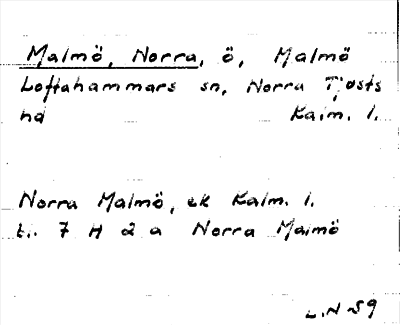 Malmö, Norra, ö, Malmö
Loftahammars sn, Norra Tjusts
hd Kalm. l.
Norra Malmö, ek Kalm. l.
bl. 7 H 2 a Norra Malmö
L.N-59